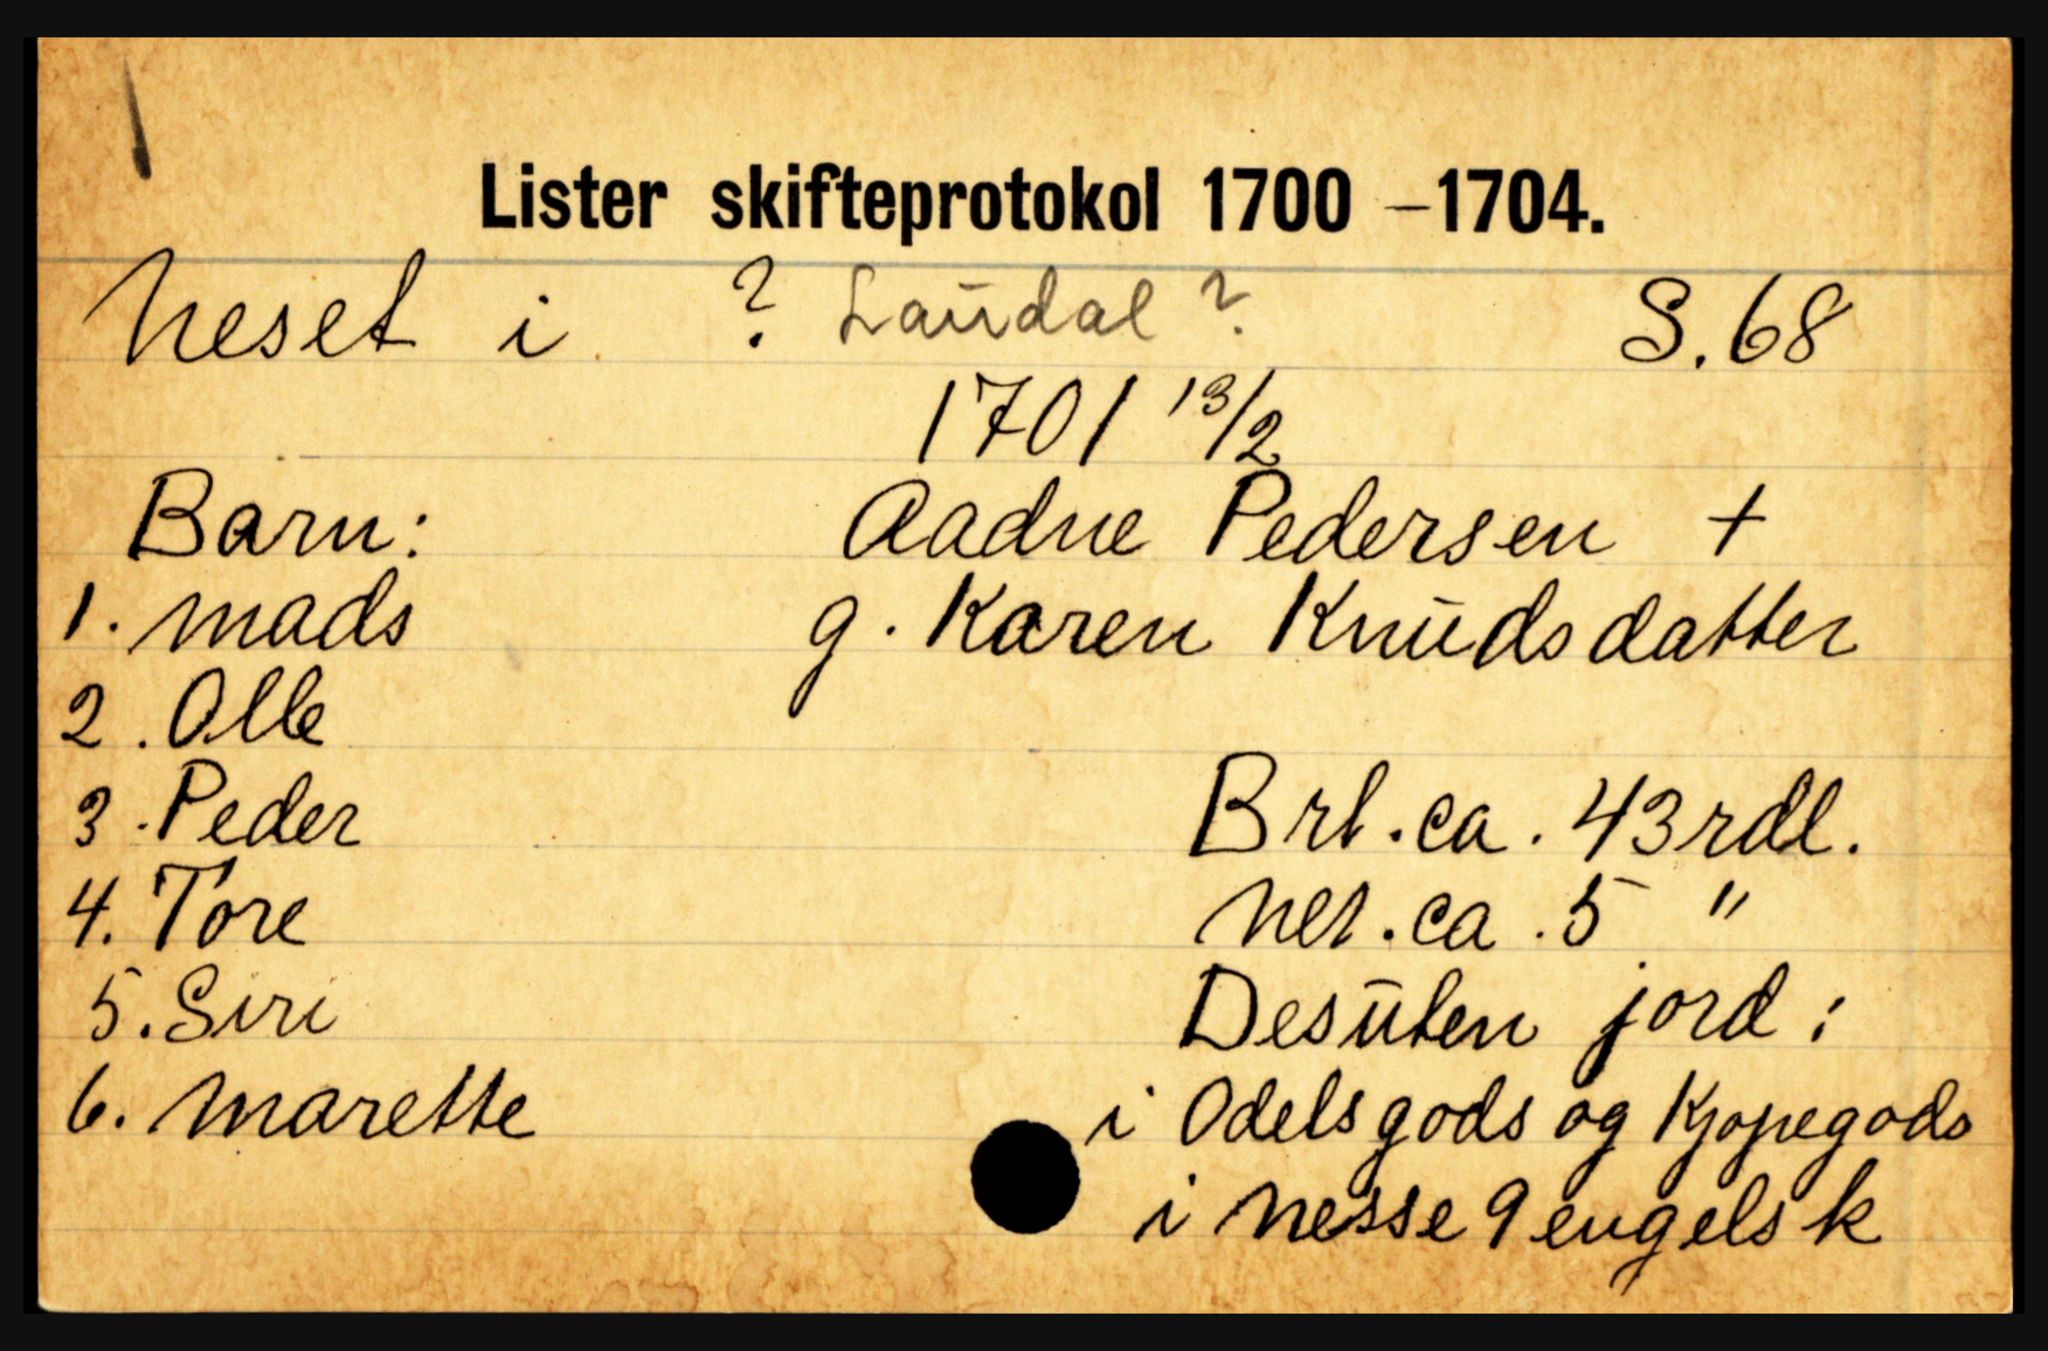 Lister skifteprotokol 1700 – 1704.
Neset i ? Laudal ? S. 68
1701 13/2
Barn: Aadne Pedersen +
1. Mads g. Karen Knudsdatter
2. Olle
3. Peder Brt. ca. 43 rdl.
4. Tore Net. ca. 5 "
5. Siri Desuten jord :
6. Marette i Odelsgods og Kjøpegods
i Nesse 9 engelsk